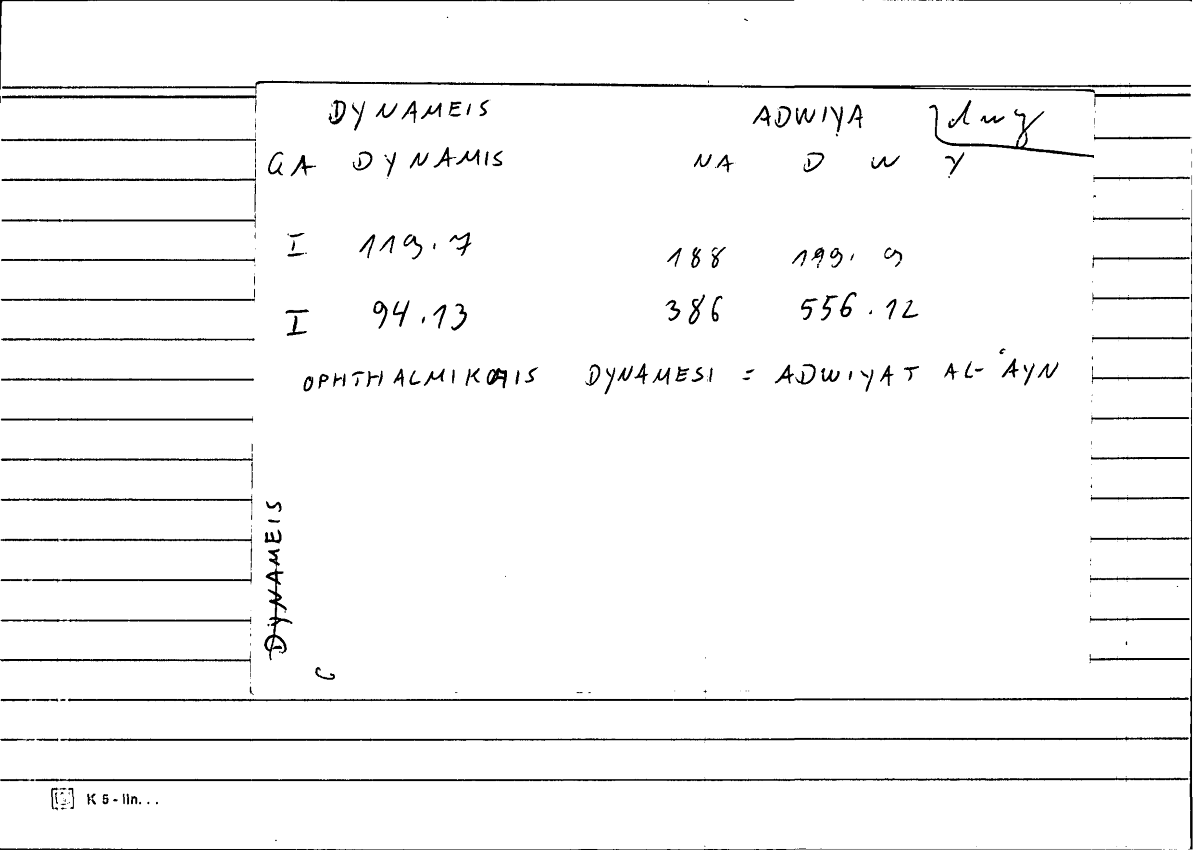 DYNAMEIS ADWIYA dwy
GA DYNAMIS NA D W Y
I 119.7 188 199.9
I 94.13 386 556.12
OPHTHALMIKAIS DYNAMESI = ADWIYAT AL-ʿAYN
DYNAMEIS
K 5 - lin...